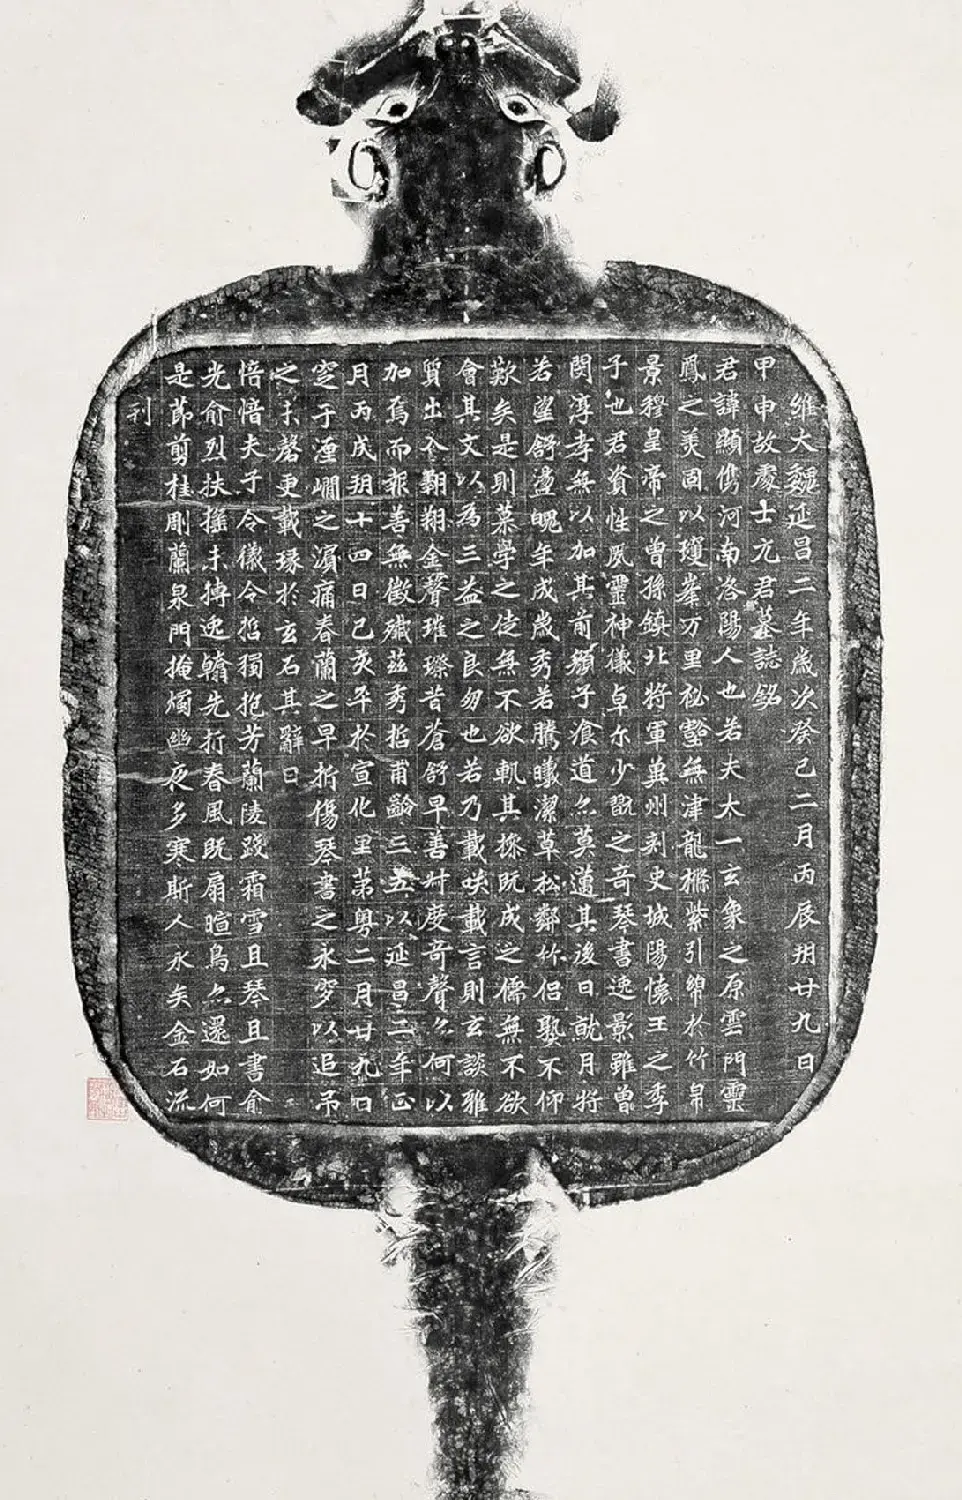 維大魏延昌二年歲次癸巳二月丙辰朔廿九日
甲申故處士元君墓誌銘
君諱顯儁河南洛陽人也若夫太一玄象之原雲門靈
鳳之美固以瓊峯万里祕壑無津龍樹紫引綿於竹帛
景穆皇帝之曾孫鎮北將軍冀州刺史城陽懷王之季
子也君資性夙靈神儀卓尒少翫之奇琴書逸影雖曾
閔淳孝無以加其前顏子飡道亦莫邁其後日就月將
若望舒盪魄年成歲秀若騰曦潔草松鄰竹侶熟不仰
歎矣是則慕學之徒無不欲軌其操既成之儒無不欲
會其文以為三益之良朋也若乃載談載言則玄談雅
質出入翱翔金聲璀璨昔蒼舒早善叶度奇聲亦何以
加焉而報善無徵殲茲秀哲甫齡三五以延昌二年正
月丙戌朔十四日己亥卒於宣化里第粵二月廿九日
窆于瀍㵎之濱痛春蘭之早折傷琴書之永穸以追弔
之未罄更載琢於玄石其辭曰
愔愔夫子令儀令哲獨抱芳蘭陵踐霜雪且琴且書俞
光俞烈扶搖未摶逸翰先折春風既扇暄鳥亦還如何
是節剪桂彫蘭泉門掩燭幽夜多寒斯人永矣金石流
刊